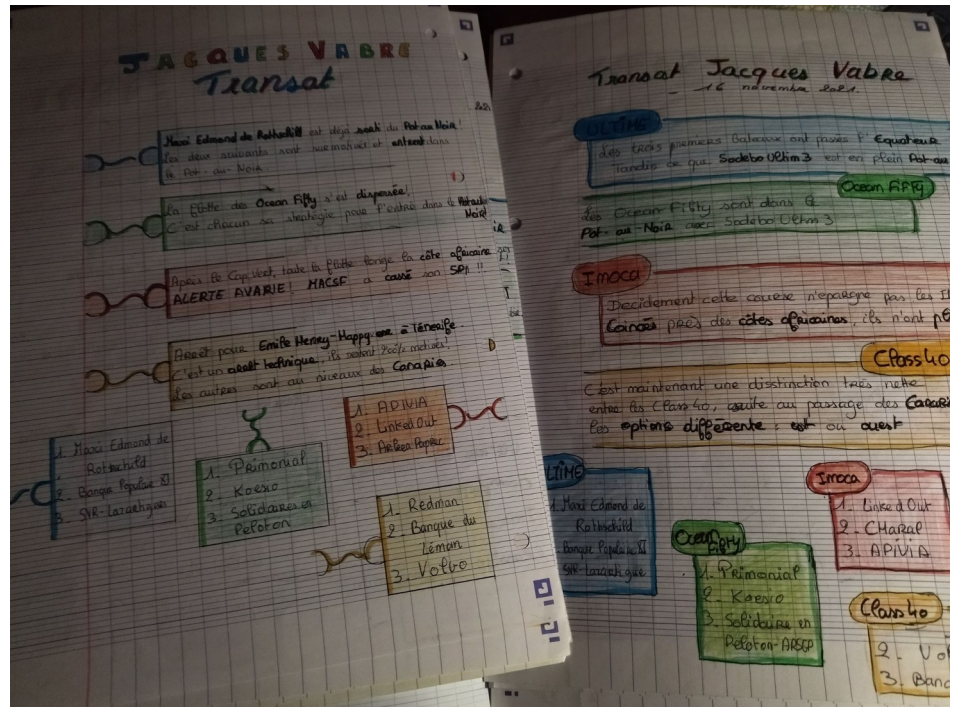 JACQUES VABRE
Transat
Maxi Edmond de Rothschild est déjà sorti du Pot au Noir!
Les deux suivants sont sur manuel et entrent dans
le Pot-du-Noir.
La flotte des Ocean Fifty s'est dispersée!
C'est chacun sa stratégie pour l'entré dans le Pot au
Noir!
Après le Cap Vert, toute la flotte longe la côte africaine
ALERTE AVARIE! MACSF a cassé son SPI!!
Arrêt pour Emile Henry-Happy à Ténerife.
C'est un arrêt technique, ils restent 200% motivés!
Les autres sont au niveaux des Canaries.
1. Maxi Edmond de
Rothschild
2. Banque Populaire XI
3. SVR-Lazartigue
1. Primonial
2. Koesio
3. Solidaires en
Peloton
1. APIVIA
2. LinkedOut
3. Arkea Paprec
1. Redman
2. Banque du
Léman
3. Volvo
Transat Jacques Vabre
- 16 novembre 2021.
ULTIME
Les trois premiers Bateaux ont passés l'Equateur
Tandis ce que Sodebo Ultim 3 est en plein Pot-au
Ocean Fifty
Les Ocean Fifty sont dans le
Pot-au-Noir avec Sodebo Ultim 3
Imoca
Decidement cette course n'épargne pas les
Coincés près des côtes africaines, ils n'ont
Class 40
C'est maintenant une disstinction très nette
entre les Class 40, suite au passage des
les options différente : est ou ouest
ULTIME
1. Maxi Edmond de
Rothschild
Banque Populaire XI
SVR-Lazartigue
Ocean Fifty
1. Primonial
2. Koesio
3. Solidaire en
Peloton-ARSEP
Imoca
1. Linked Out
2. CHaral
3. APIVIA
Class 40
2.
3.